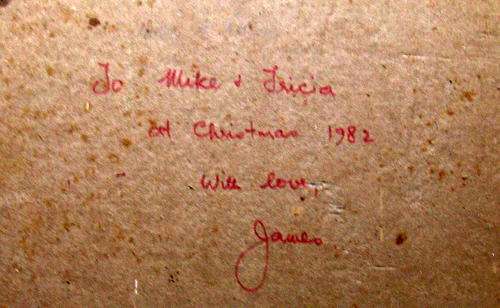 To Mike + Tricia
At Christmas 1982
With love,
James